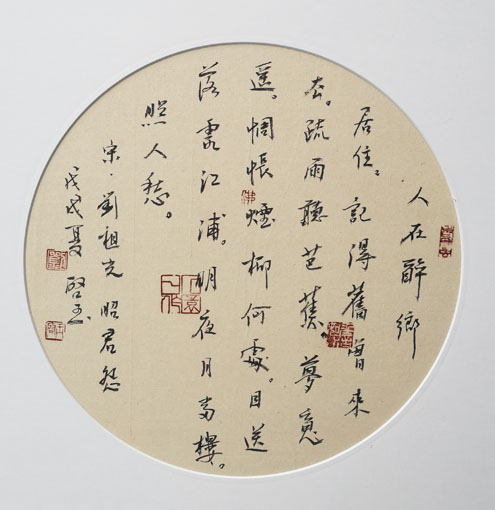 人在醉鄉
居住。記得舊曾來
去。疏雨聽芭蕉。夢意
遥。惆悵煙柳何處。目送
落霞江浦。明夜月當樓。
照人愁。
宋·劉祖光昭君怨
戊戌夏